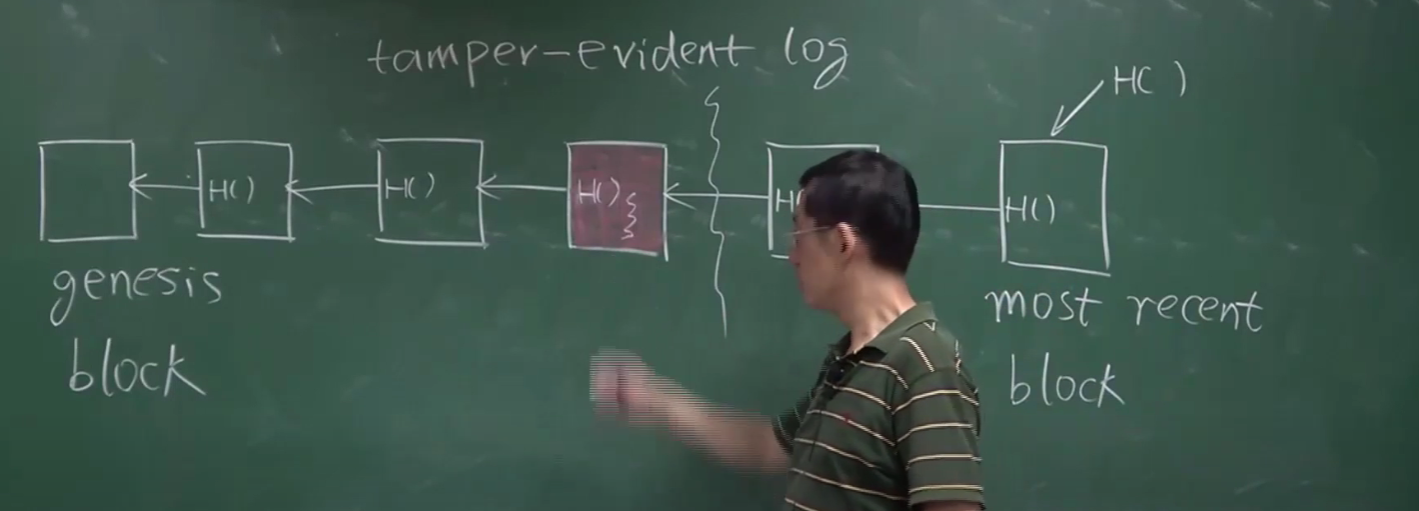 tamper-evident log
H( )
H()
H()
H()
H()
genesis
block
most recent
block